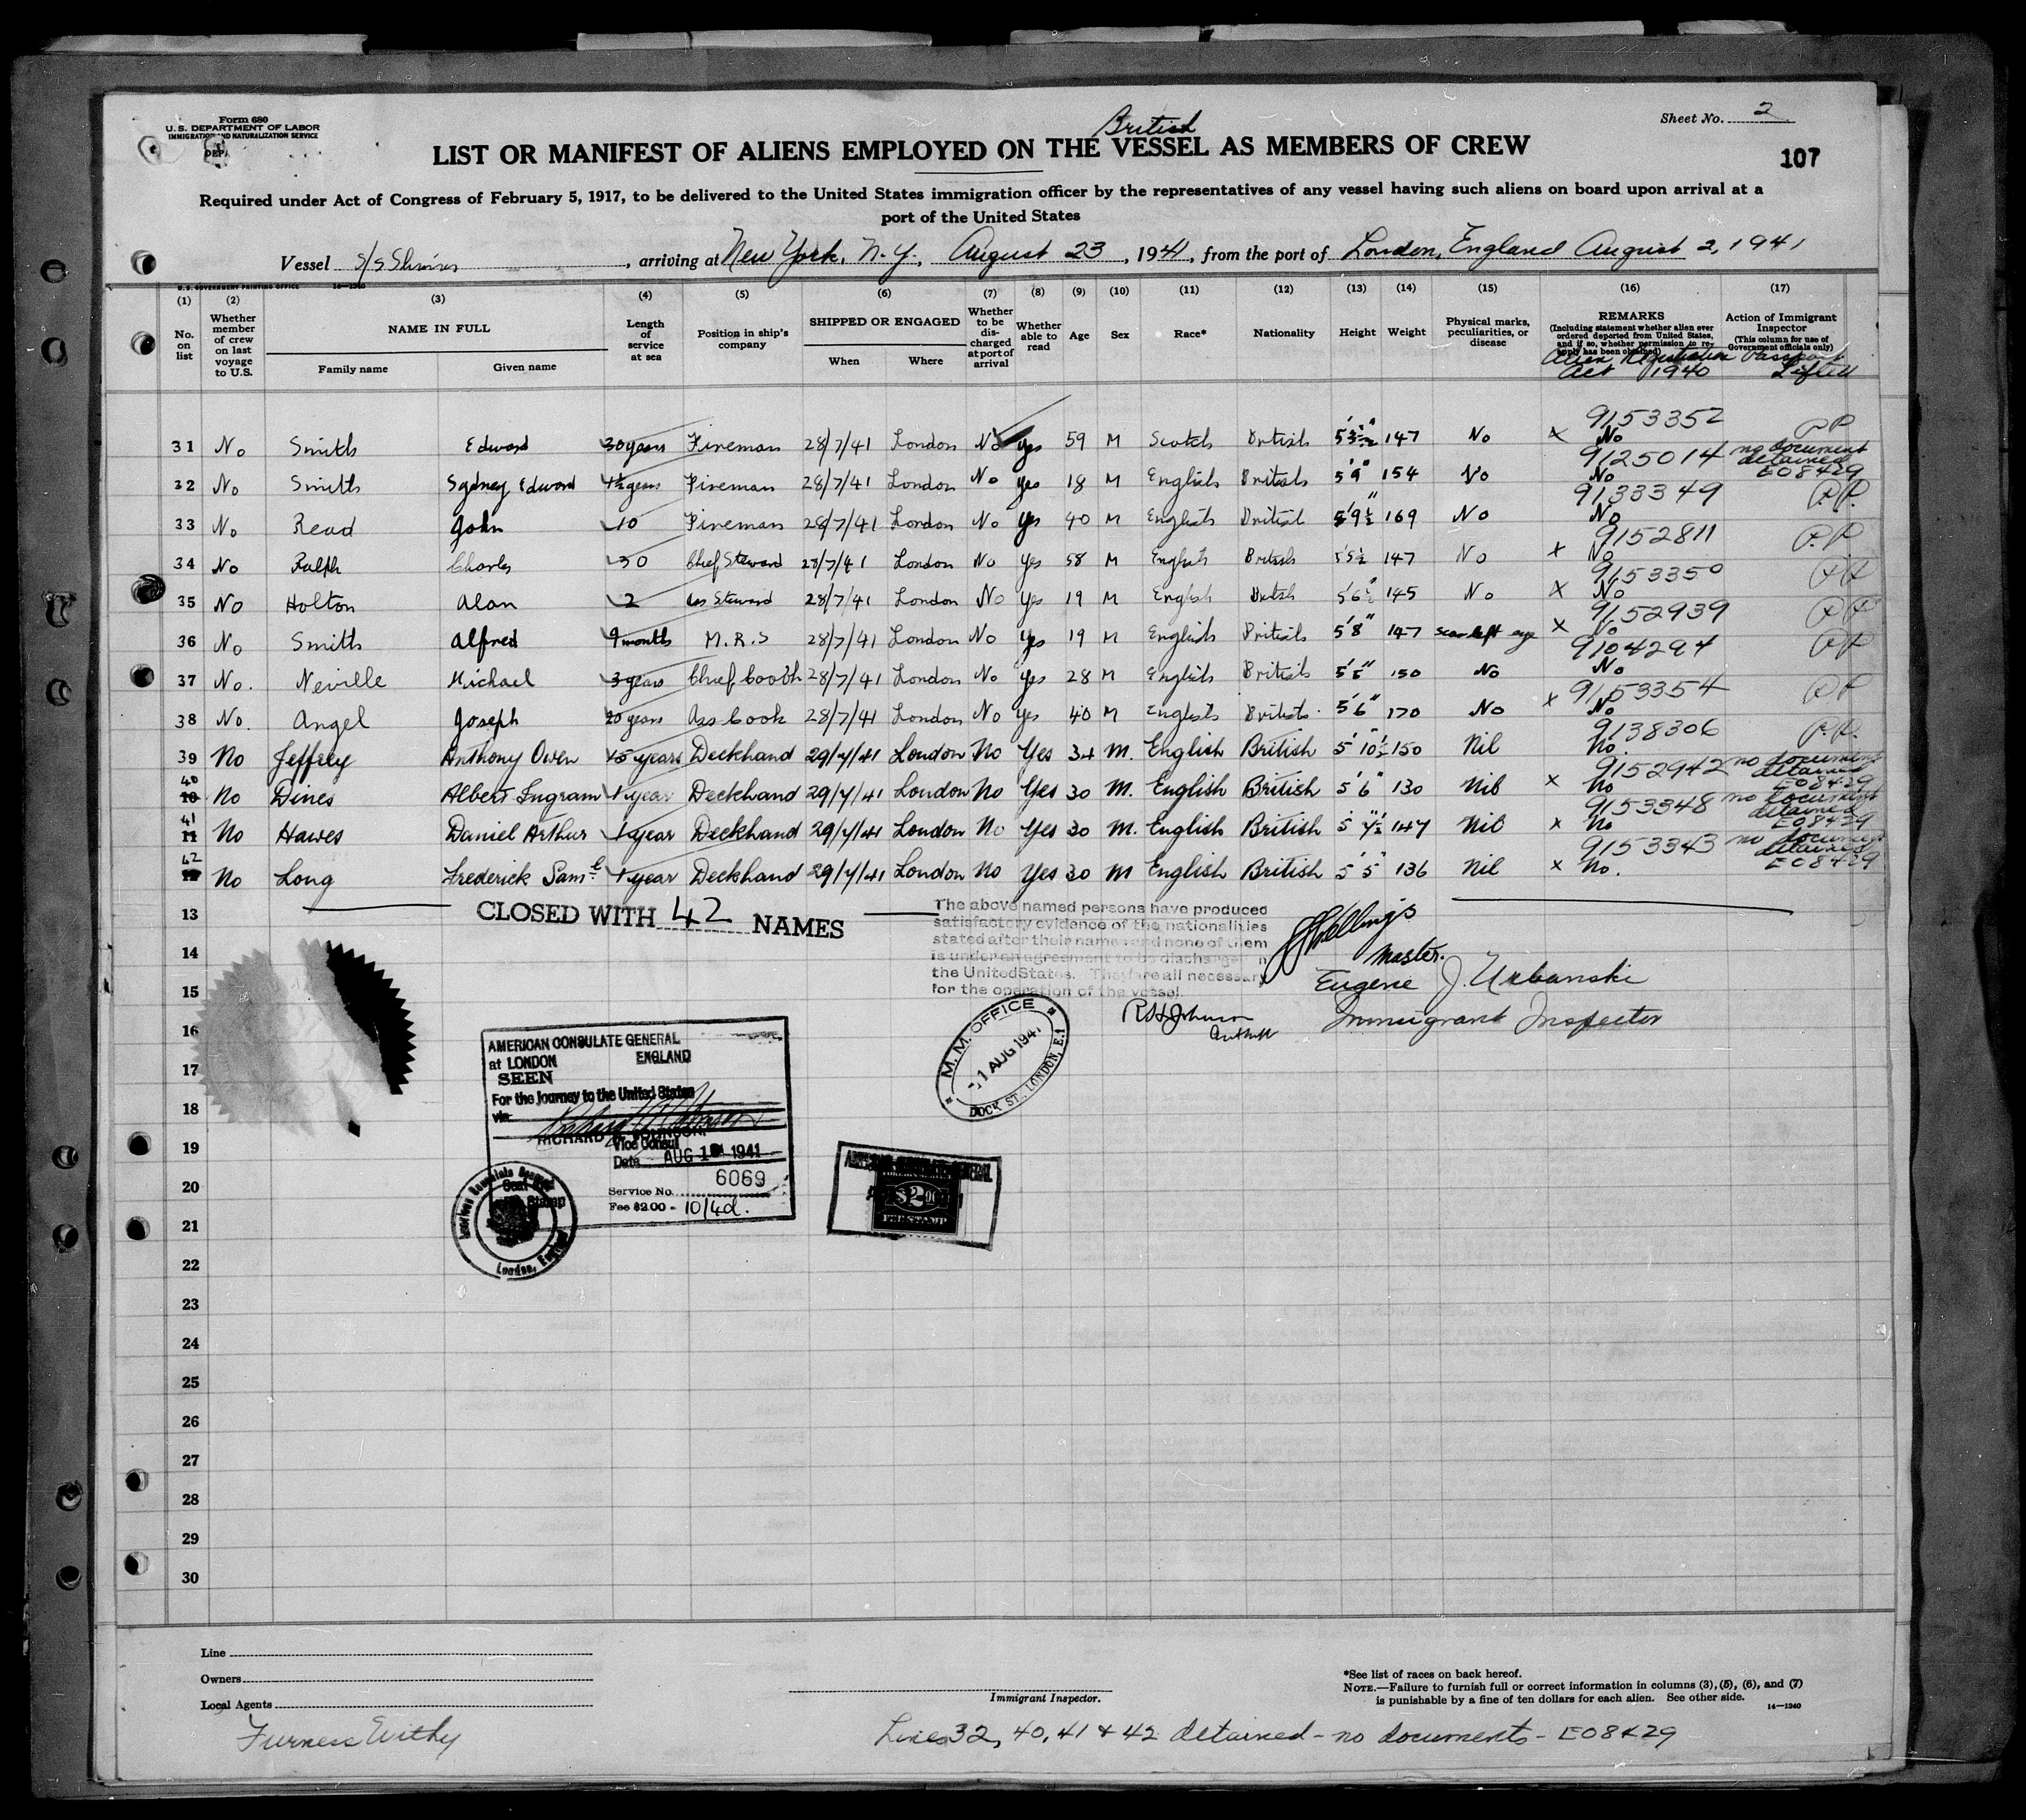 Form 680
U.S. DEPARTMENT OF LABOR
IMMIGRATION AND NATURALIZATION SERVICE
Sheet No. 2
British
LIST OR MANIFEST OF ALIENS EMPLOYED ON THE VESSEL AS MEMBERS OF CREW
107
Required under Act of Congress of February 5, 1917, to be delivered to the United States immigration officer by the representatives of any vessel having such aliens on board upon arrival at a
port of the United States
Vessel S/S, arriving at New York, N.Y., August 23, 1941, from the port of London, England August 2, 1941
U.S. GOVERNMENT PRINTING OFFICE 14-1240
(1) (2) (3) (4) (5) (6) (7) (8) (9) (10) (11) (12) (13) (14) (15) (16) (17)
No. on list
Whether member of crew on last voyage to U.S.
NAME IN FULL
Family name
Given name
Length of service at sea
Position in ship's company
SHIPPED OR ENGAGED
When
Where
Whether to be discharged at port of arrival
Whether able to read
Age
Sex
Race*
Nationality
Height
Weight
Physical marks, peculiarities, or disease
REMARKS
(Including statement whether alien ever ordered deported from United States, and if so, whether permission to reapply has been obtained)
Alien Registration Act 1940
Action of Immigrant Inspector
(This column for use of Government officials only)
Passport Lifted
31 No Smith Edward 30 years Fireman 28/7/41 London No yes 59 M Scotch British 147 No x 9153352 No PP
32 No Smith Sydney Edward 1½ years Fireman 28/7/41 London No yes 18 M English British 5'9" 154 No 9125014 No no document detained E08429
33 No Read John 10 Fireman 28/7/41 London No yes 40 M English British 5'9½ 169 No 9133349 No PP.
34 No Ralph Charles 30 Chief Steward 28/7/41 London No Yes 58 M English British 5'5½ 147 No x 9152811 No P.P.
35 No Holton Alan 2 Ass Steward 28/7/41 London No yes 19 M English British 5'6½ 145 No x 9153350 No PP
36 No Smith Alfred 9 months M.R.S 28/7/41 London No yes 19 M English British 5'8" 147 scar left eye x 9152939 No PP
37 No. Neville Michael 3 years Chief Cook 28/7/41 London No yes 28 M English British 150 No 9104294 No PP
38 No. Angel Joseph 20 years Ass Cook 28/7/41 London No yes 40 M English British 5'6" 170 No x 9153354 No PP
39 No Jeffrey Anthony Owen 15 years Deckhand 29/7/41 London No Yes 34 M. English British 5' 10½" 150 Nil 9138306 No. P.P.
40 No Dines Albert Ingram 1 year Deckhand 29/7/41 London No Yes 30 M. English British 5'6" 130 Nil x 9152942 No no document detained E08429
41 No Hawes Daniel Arthur 1 year Deckhand 29/7/41 London No Yes 30 M. English British 5'7½" 147 Nil x 9153348 No no document detained E08429
42 No Long Frederick Saml 1 year Deckhand 29/7/41 London No Yes 30 M English British 5'5" 136 Nil x 9153343 No. no document detained E08429
13 CLOSED WITH 42 NAMES
The above named persons have produced
satisfactory evidence of the nationalities
stated after their names and none of them
is under an agreement to be discharged in
the United States. They are all necessary
for the operation of the vessel
Master.
Eugene J. Urbanski
Immigrant Inspector
R H Johnson
14
15
16
17
18
19
20
21
22
23
24
25
26
27
28
29
30
M. M. OFFICE
1 AUG 1941
DOCK ST., LONDON, E.1
AMERICAN CONSULATE GENERAL
at LONDON ENGLAND
SEEN
For the Journey to the United States
via
RICHARD H. JOHNSON,
Vice Consul
Date AUG 1 1941
Service No. 6069
Fee $2.00 - 10/4d.
London, England
$2.00
FEE STAMP
Line
Owners
Local Agents
Furness Withy
Immigrant Inspector.
*See list of races on back hereof.
NOTE.—Failure to furnish full or correct information in columns (3), (5), (6), and (7)
is punishable by a fine of ten dollars for each alien. See other side. 14-1240
Lines 32, 40, 41 & 42 detained - no documents - E08429